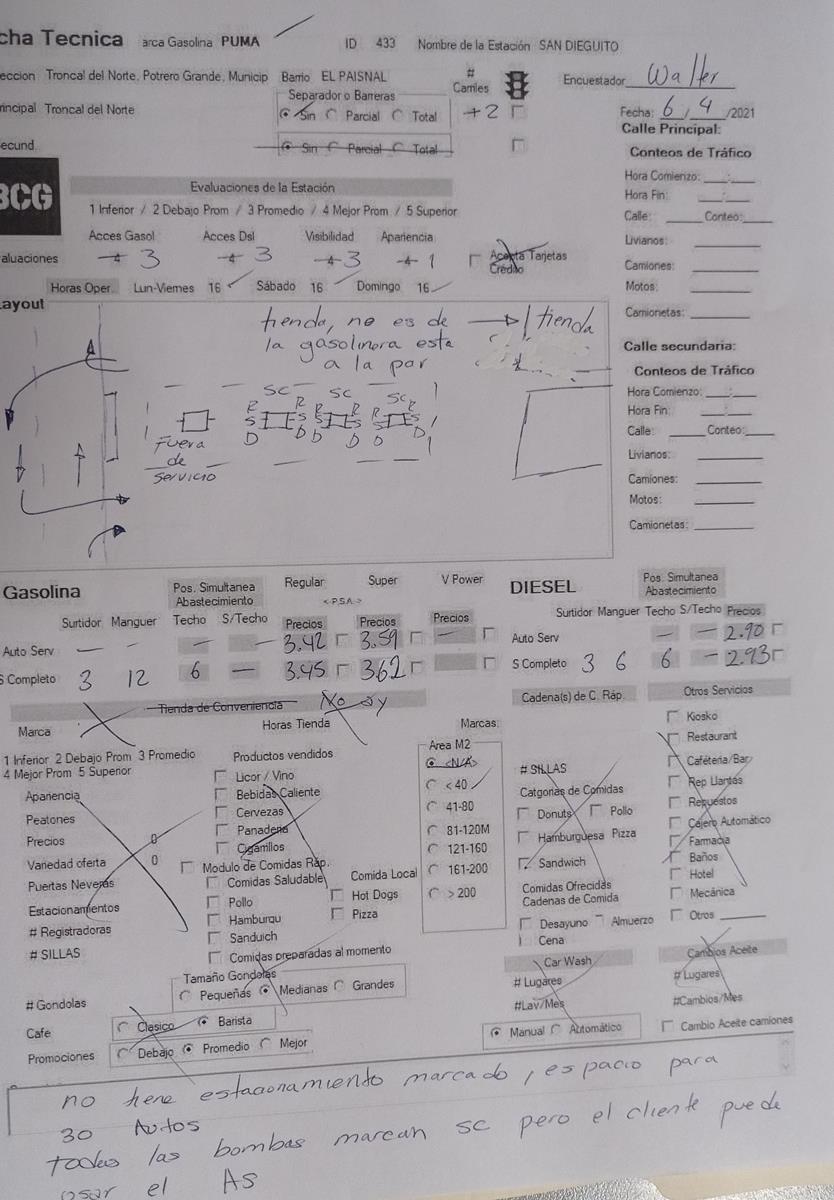 cha Tecnica arca Gasolina PUMA ID 433 Nombre de la Estación SAN DIEGUITO
eccion Troncal del Norte, Potrero Grande, Municip Barrio EL PAISNAL # Carriles Encuestador Walter
Separador o Barreras
rincipal Troncal del Norte Sin Parcial Total 2 Fecha: 6/4/2021
ecund. Sin Parcial Total
Calle Principal:
Conteos de Tráfico
Hora Comienzo: __:__
Hora Fin: __:__
Calle: ____ Conteo: ____
Livianos: ____
Camiones: ____
Motos: ____
Camionetas: ____
BCG
Evaluaciones de la Estación
1 Inferior / 2 Debajo Prom / 3 Promedio / 4 Mejor Prom / 5 Superior
Acces Gasol Acces Dsl Visibilidad Apariencia
aluaciones 3 3 3 1 Acepta Tarjetas Crédito
Horas Oper. Lun-Viernes 16 Sábado 16 Domingo 16
ayout
tienda, no es de
la gasolinera esta
a la par
tienda
SC SC SC
R R R R R R
S S S S S S
D D D D D D
Fuera
de
servicio
Calle secundaria:
Conteos de Tráfico
Hora Comienzo: __:__
Hora Fin: __:__
Calle: ____ Conteo: ____
Livianos: ____
Camiones: ____
Motos: ____
Camionetas: ____
Gasolina Pos. Simultanea Abastecimiento Regular Super V Power
<-P.S.A.->
Surtidor Manguer Techo S/Techo Precios Precios Precios
Auto Serv — — — — 3.42 3.59 —
S Completo 3 12 6 — 3.45 3.62
DIESEL Pos. Simultanea Abastecimiento
Surtidor Manguer Techo S/Techo Precios
Auto Serv — — 2.90
S Completo 3 6 6 — 2.93
Tienda de Conveniencia No ay
Marca Horas Tienda Marcas:
1 Inferior 2 Debajo Prom 3 Promedio
4 Mejor Prom 5 Superior
Apariencia
Peatones
Precios 0
Variedad oferta 0
Puertas Neveras
Estacionamientos
# Registradoras
# SILLAS
# Gondolas
Cafe Clasico Barista
Promociones Debajo Promedio Mejor
Productos vendidos
Licor / Vino
Bebidas Caliente
Cervezas
Panaderia
Cigarrillos
Modulo de Comidas Ráp.
Comidas Saludable
Pollo
Hamburqu
Sanduich
Comidas preparadas al momento
Comida Local
Hot Dogs
Pizza
Tamaño Gondolas
Pequeñas Medianas Grandes
Area M2
<N/A>
< 40
41-80
81-120M
121-160
161-200
> 200
Cadena(s) de C. Ráp.
# SILLAS
Catgorias de Comidas
Donuts Pollo
Hamburguesa Pizza
Sandwich
Comidas Ofrecidas
Cadenas de Comida
Desayuno Almuerzo
Cena
Car Wash
# Lugares
#Lav/Mes
Manual Automático
Otros Servicios
Kiosko
Restaurant
Caféteria/Bar
Rep Llantas
Repuestos
Cajero Automático
Farmacia
Baños
Hotel
Mecánica
Otros ____
Cambios Aceite
# Lugares
#Cambios/Mes
Cambio Aceite camiones
no tiene estacionamiento marcado, espacio para
30 Autos
todas las bombas marcan sc pero el cliente puede
osar el AS